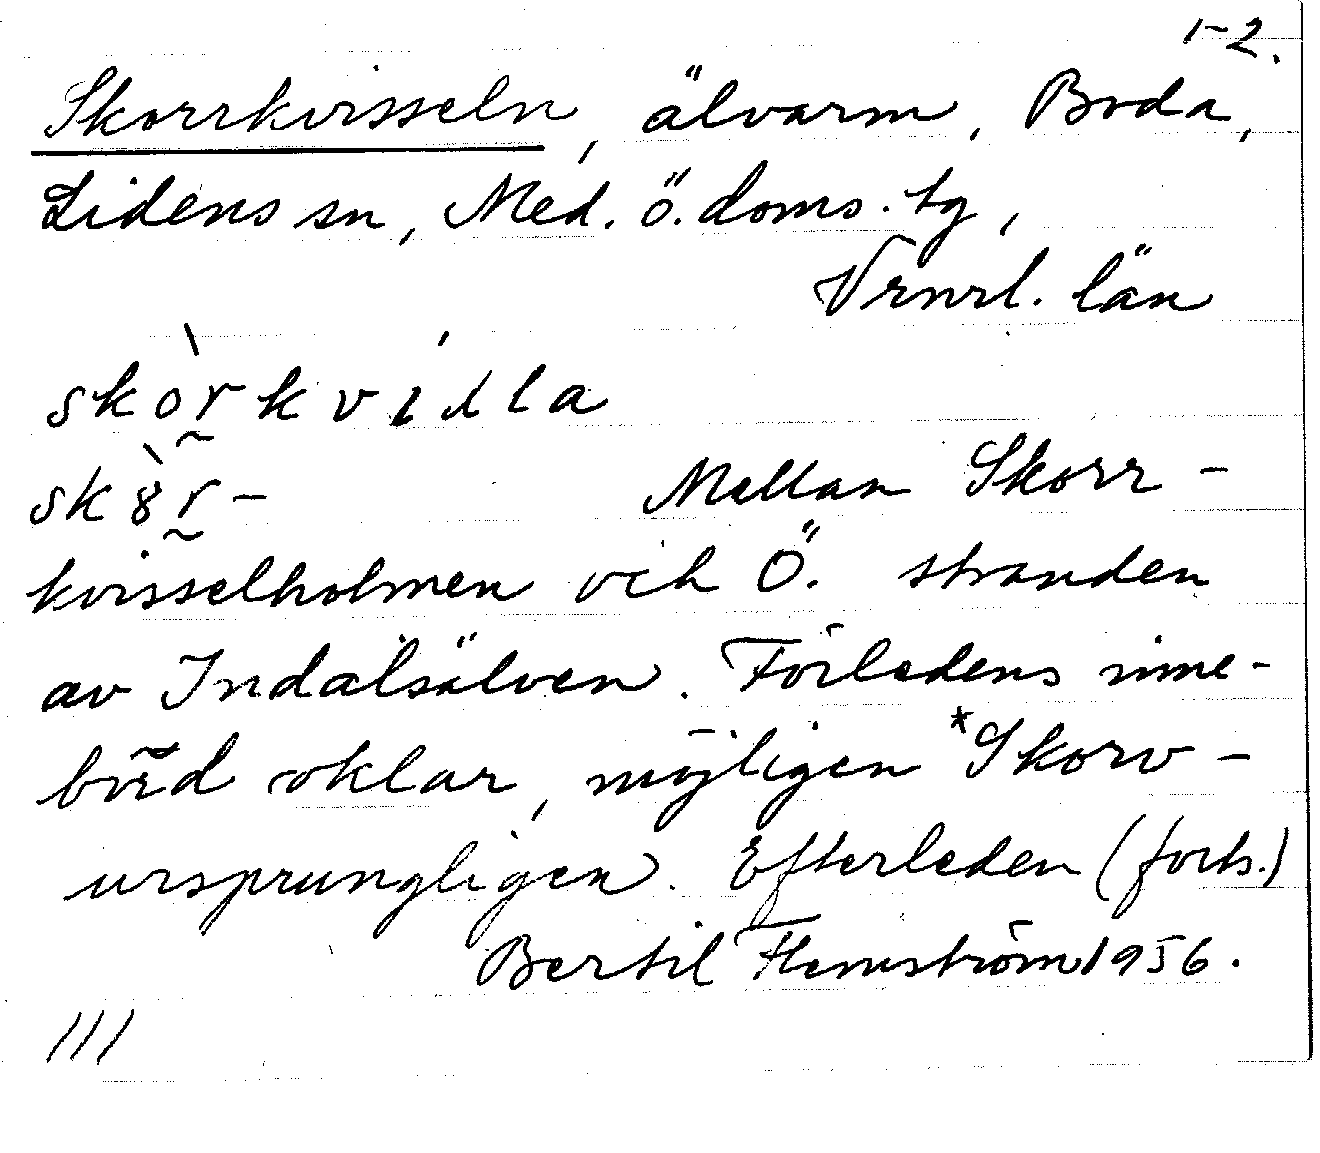 1-2.
Skorrkvisseln, älvarm, Boda,
Lidens sn, Med. ö. doms. tg,
Vrnrl. län
skòrkvislla
skȣ̀r-
Mellan Skorr-
kvisselholmen och Ö. stranden
av Indalsälven. Förledens inne-
börd oklar, möjligen *Skorv-
ursprungligen. Efterleden (forts.)
Bertil Flemström 1956.
///